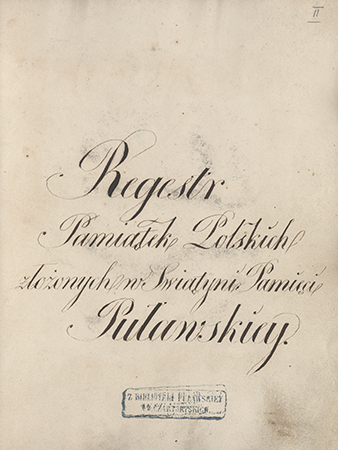 II
Regestr
Pamiątek Polskich
złożonych w Swiątyni Pamięci
Puławskiey.
Z BIBLIOTEKI PUŁAWSKIEJ
XX CZARTORYSKICH